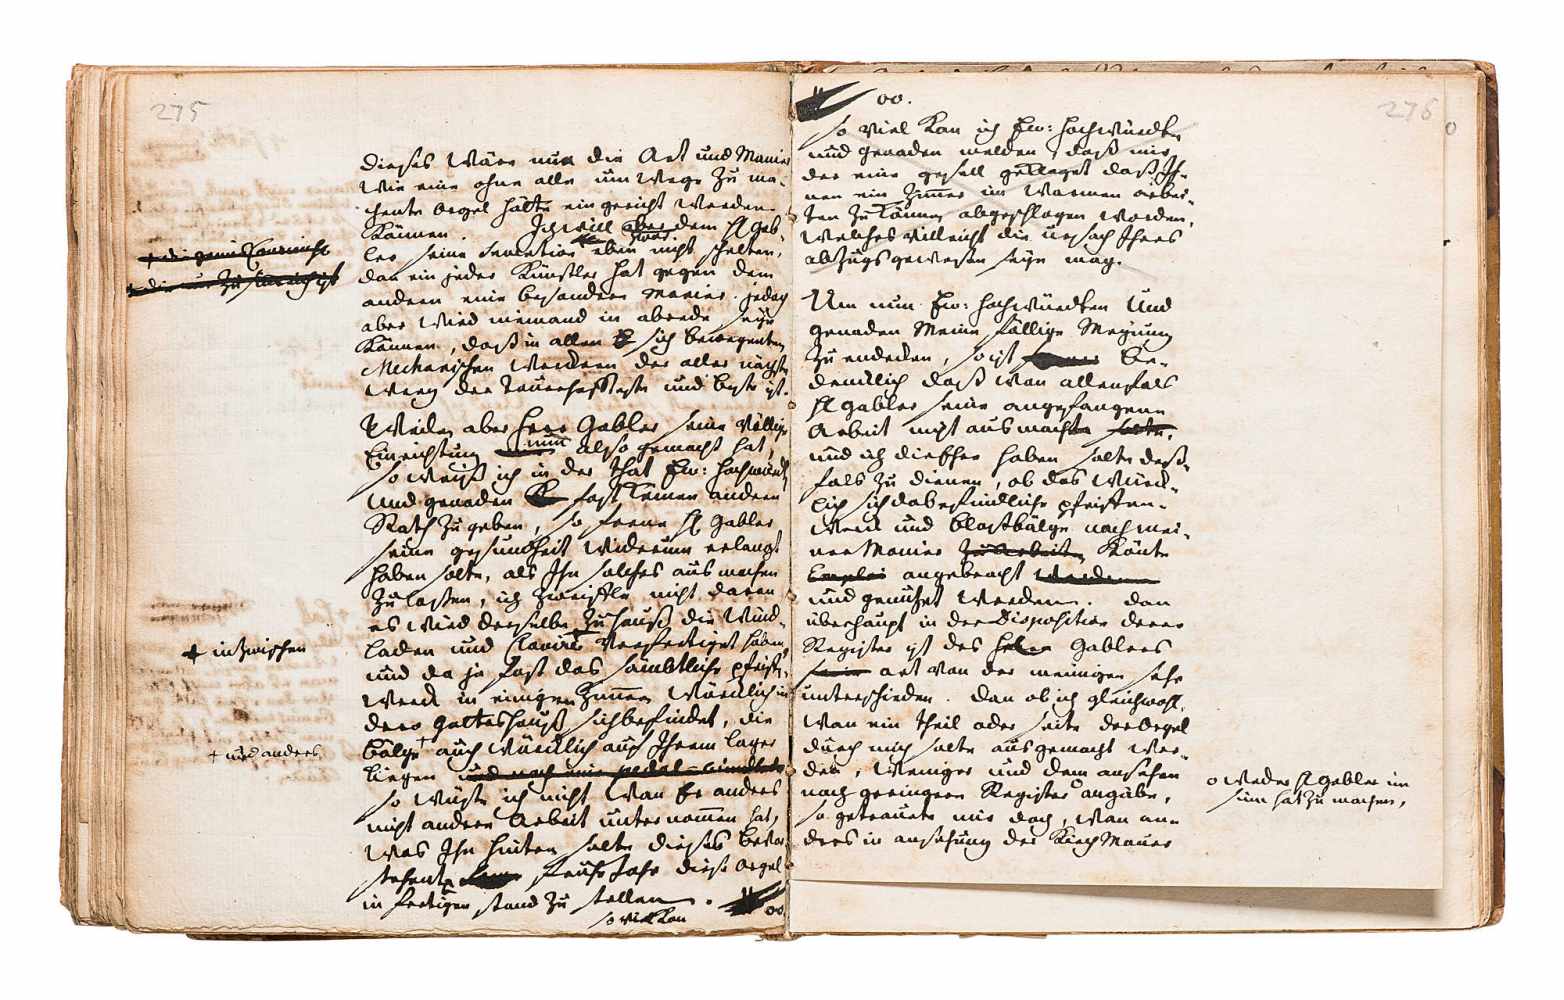 275
dieses wäre nun die Art und Manier
wie eine ohne alle um Wege zu ma-
chente orgel hätte eingericht werden
können. Ich will aber dem H Gab-
zwar
ler seine Invention eben nicht schelten,
dan ein jeder Künstler hat gegen dem
andern eine besondere Manier. jedoch
aber wird niemand in abrede seyn
können, daß in allen sich bewegenten
Mechanischen Werckern der aller nächste
Weeg der Dauerhaffteste und beste ist.
Weilen aber Herr Gabler seine völlige
Einrichtung nun also gemacht hat,
so weiß ich in der that Ew: Hochwürdt
und genaden fast keinen andern
Rath zu geben, so ferne H Gabler
seine gesundheit widerum erlangt
haben solte, als Ihn solches aus machen
zu lassen, ich zweiffle nicht daran
es wird derselbe zu hauß die Wind-
laden und Clavier verfertiget haben,
und da ja fast das sämbtliche pfeiff-
werck in einigen Zimern würcklich in
dero gotteshauß sich befindet, die
bälge + auch würcklich auf Ihrem lager
liegen und noch eine pedal-windlade
so wüste ich nicht wan Er anders
nicht andere Arbeit unternomen hat,
was Ihn hinten solte dieses bevor
stehente früh Jahr diese orgel
in fertigen stand zu stellen.
so viel kan
oo
+ inzwischen
+ und anders
276
oo.
so viel kan ich Ew: Hochwürdten
und genaden melden, daß mir
der eine gesell geklaget daß Ih-
nen ein Zimer im warmen arbei-
ten zu können abgeschlagen worden,
welches villeicht die ursach Ihres
abzugs gewesen seyn mag.
Um nun Ew: Hochwürdten und
genaden Meine fällige Meynung
zu endecken, so ist
denicklich daß wan allenfals
H gabler seine angefangene
Arbeit nicht aus machte solte,
und ich die Ehre haben solte deß-
fals zu dienen, ob das würck-
lich sich dabefindliche pfeiffen-
werck und blastbälge nach mei-
ner Manier zu arbeiten könte
angebracht werden
und genützet werden. dan
überhaupt in der Disposition derer
Register ist des Herrn Gablers
seine art von der meinigen sehr
unterschieden. dan ob ich gleichwohl,
wan ein theil oder seite der orgel
durch mich solte ausgemacht wer-
den, weniger und dem ansehen
nach geringere Register o angäbe,
so getrauete mir doch, wan an-
ders in ansehung der Kirch Mauer
o weder H Gabler im
sinn hat zu machen,